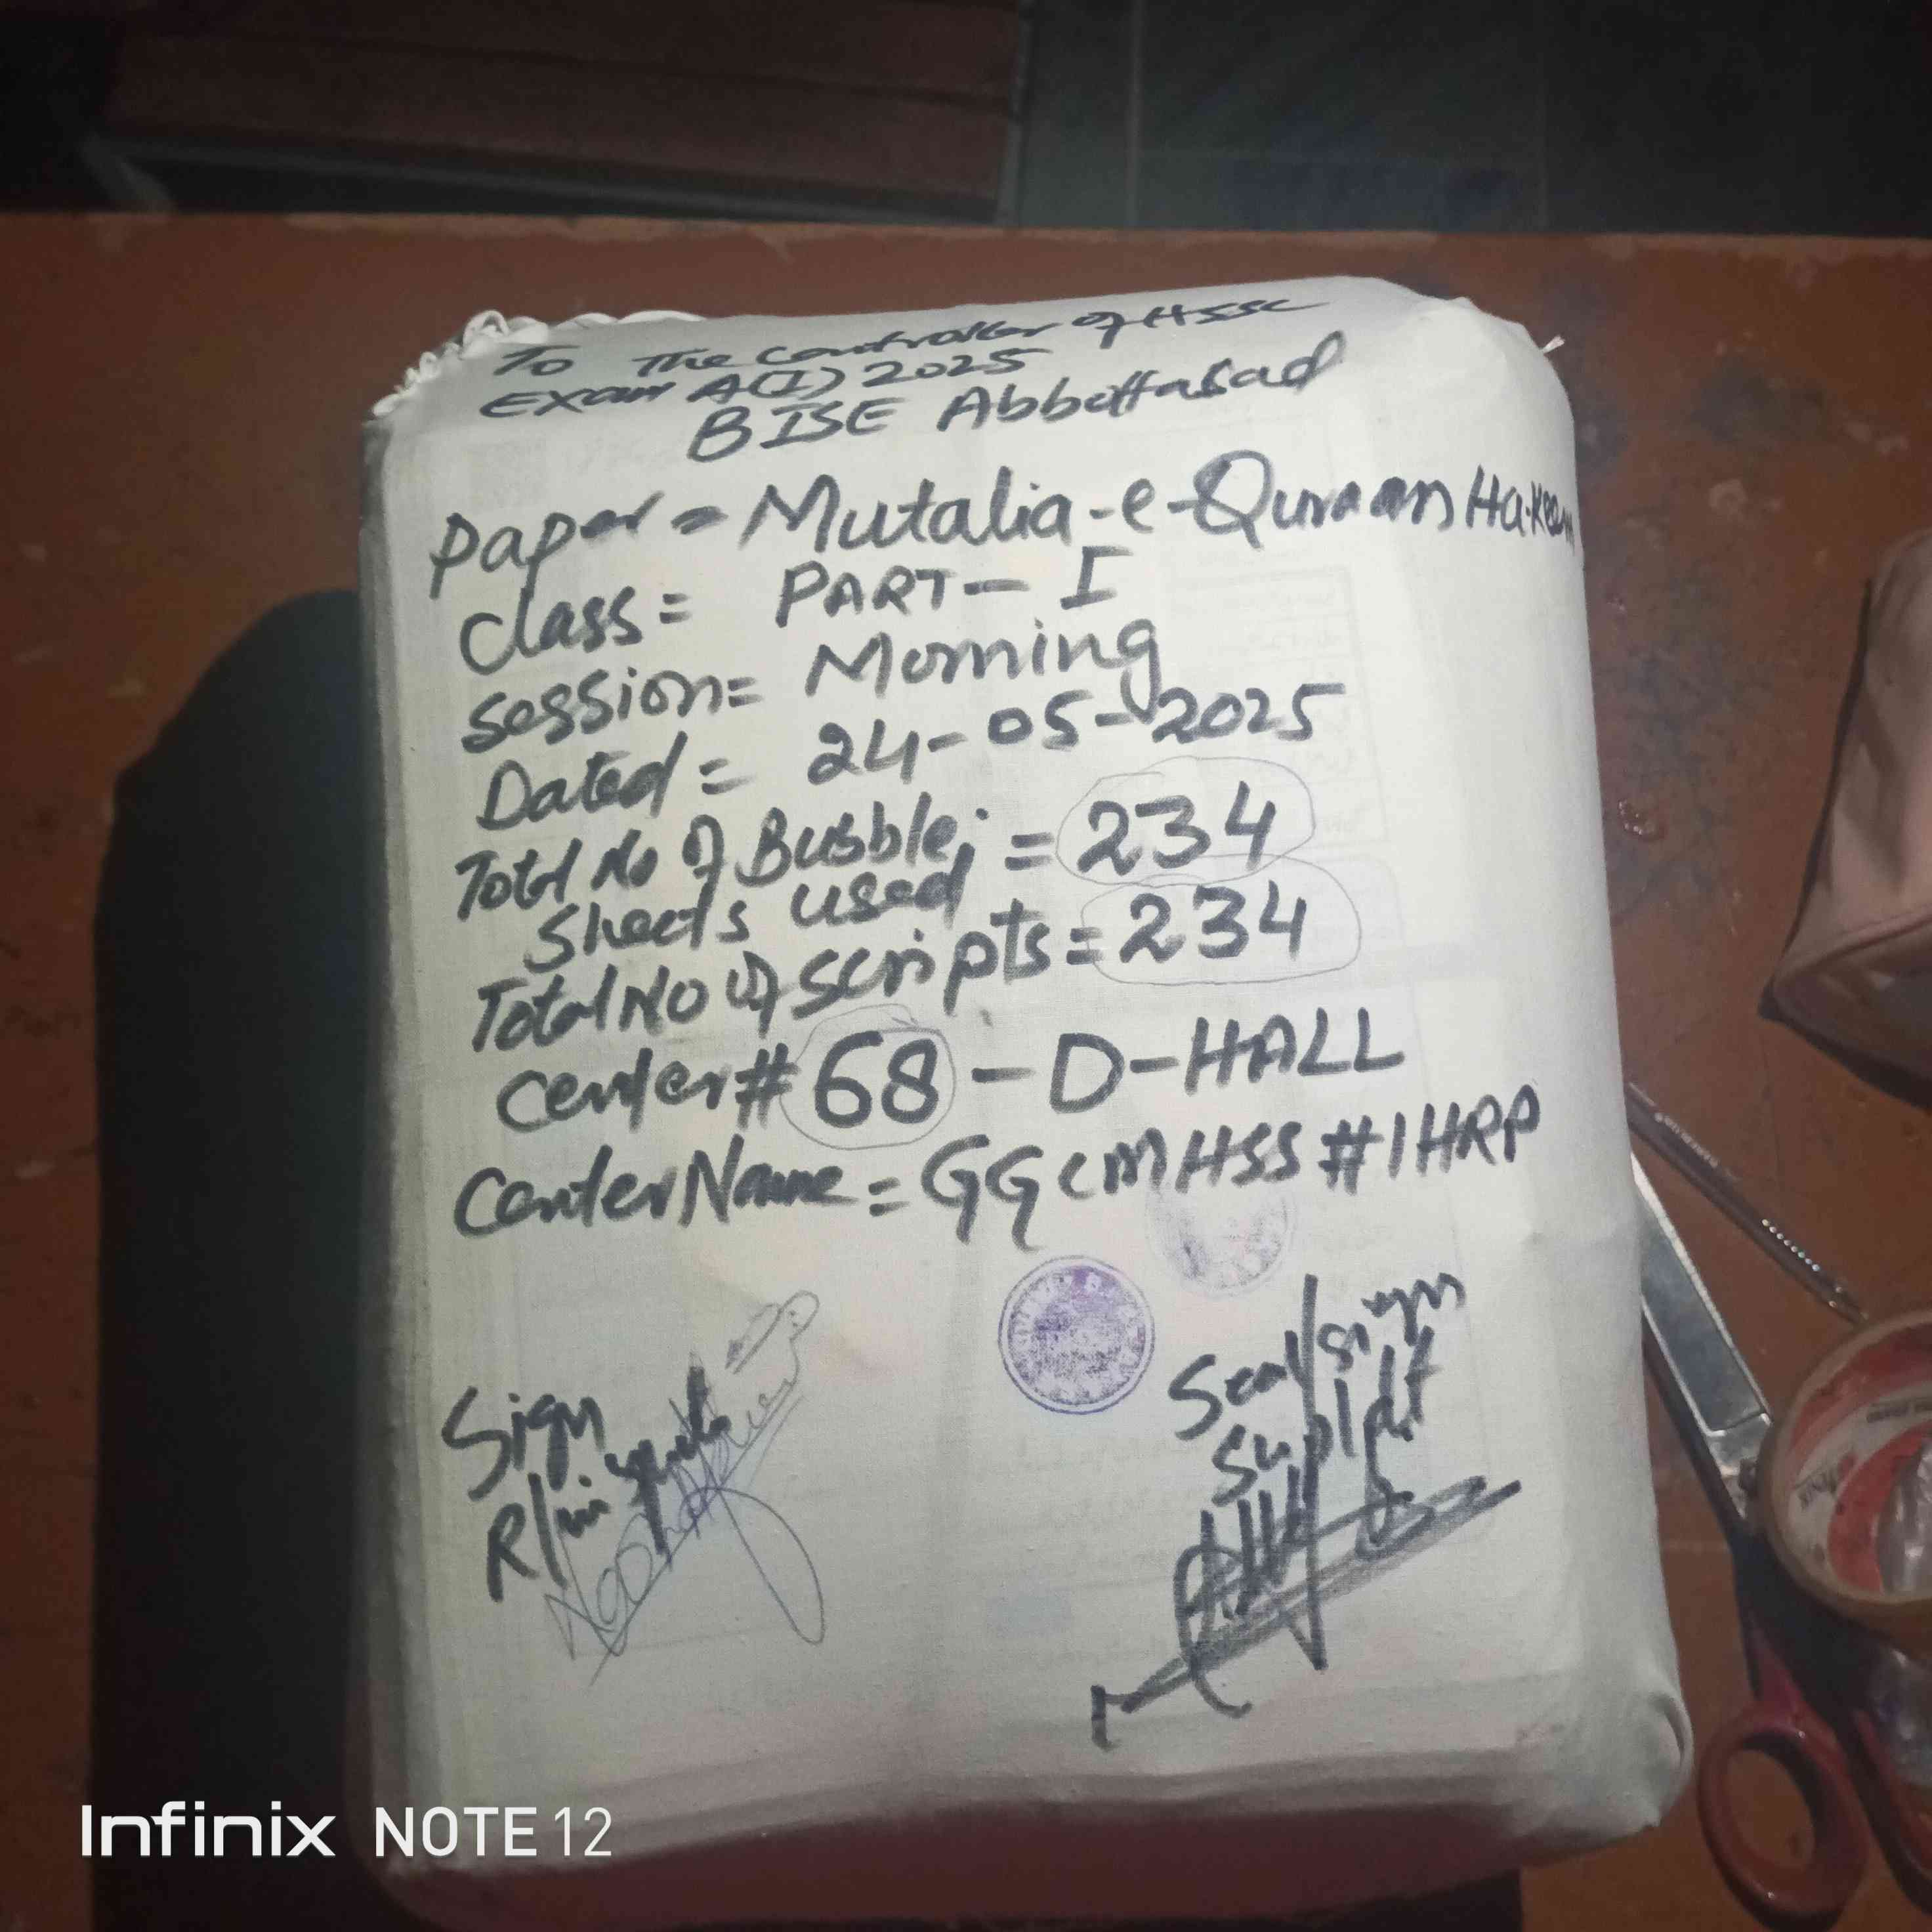 To The Controller of HSSC
Exam A(I) 2025
BISE Abbottabad
Paper = Mutalia-e-Quraan Hakeem
Class = PART - I
Session = Morning
Dated = 24-05-2025
Total No of Bubble = 234
Sheets used
Total No of Scripts = 234
Center # 68 - D-HALL
Center Name = GGCMHSS #1 HRP
Seal/sign
Supdt
Sign
R/
Infinix NOTE 12